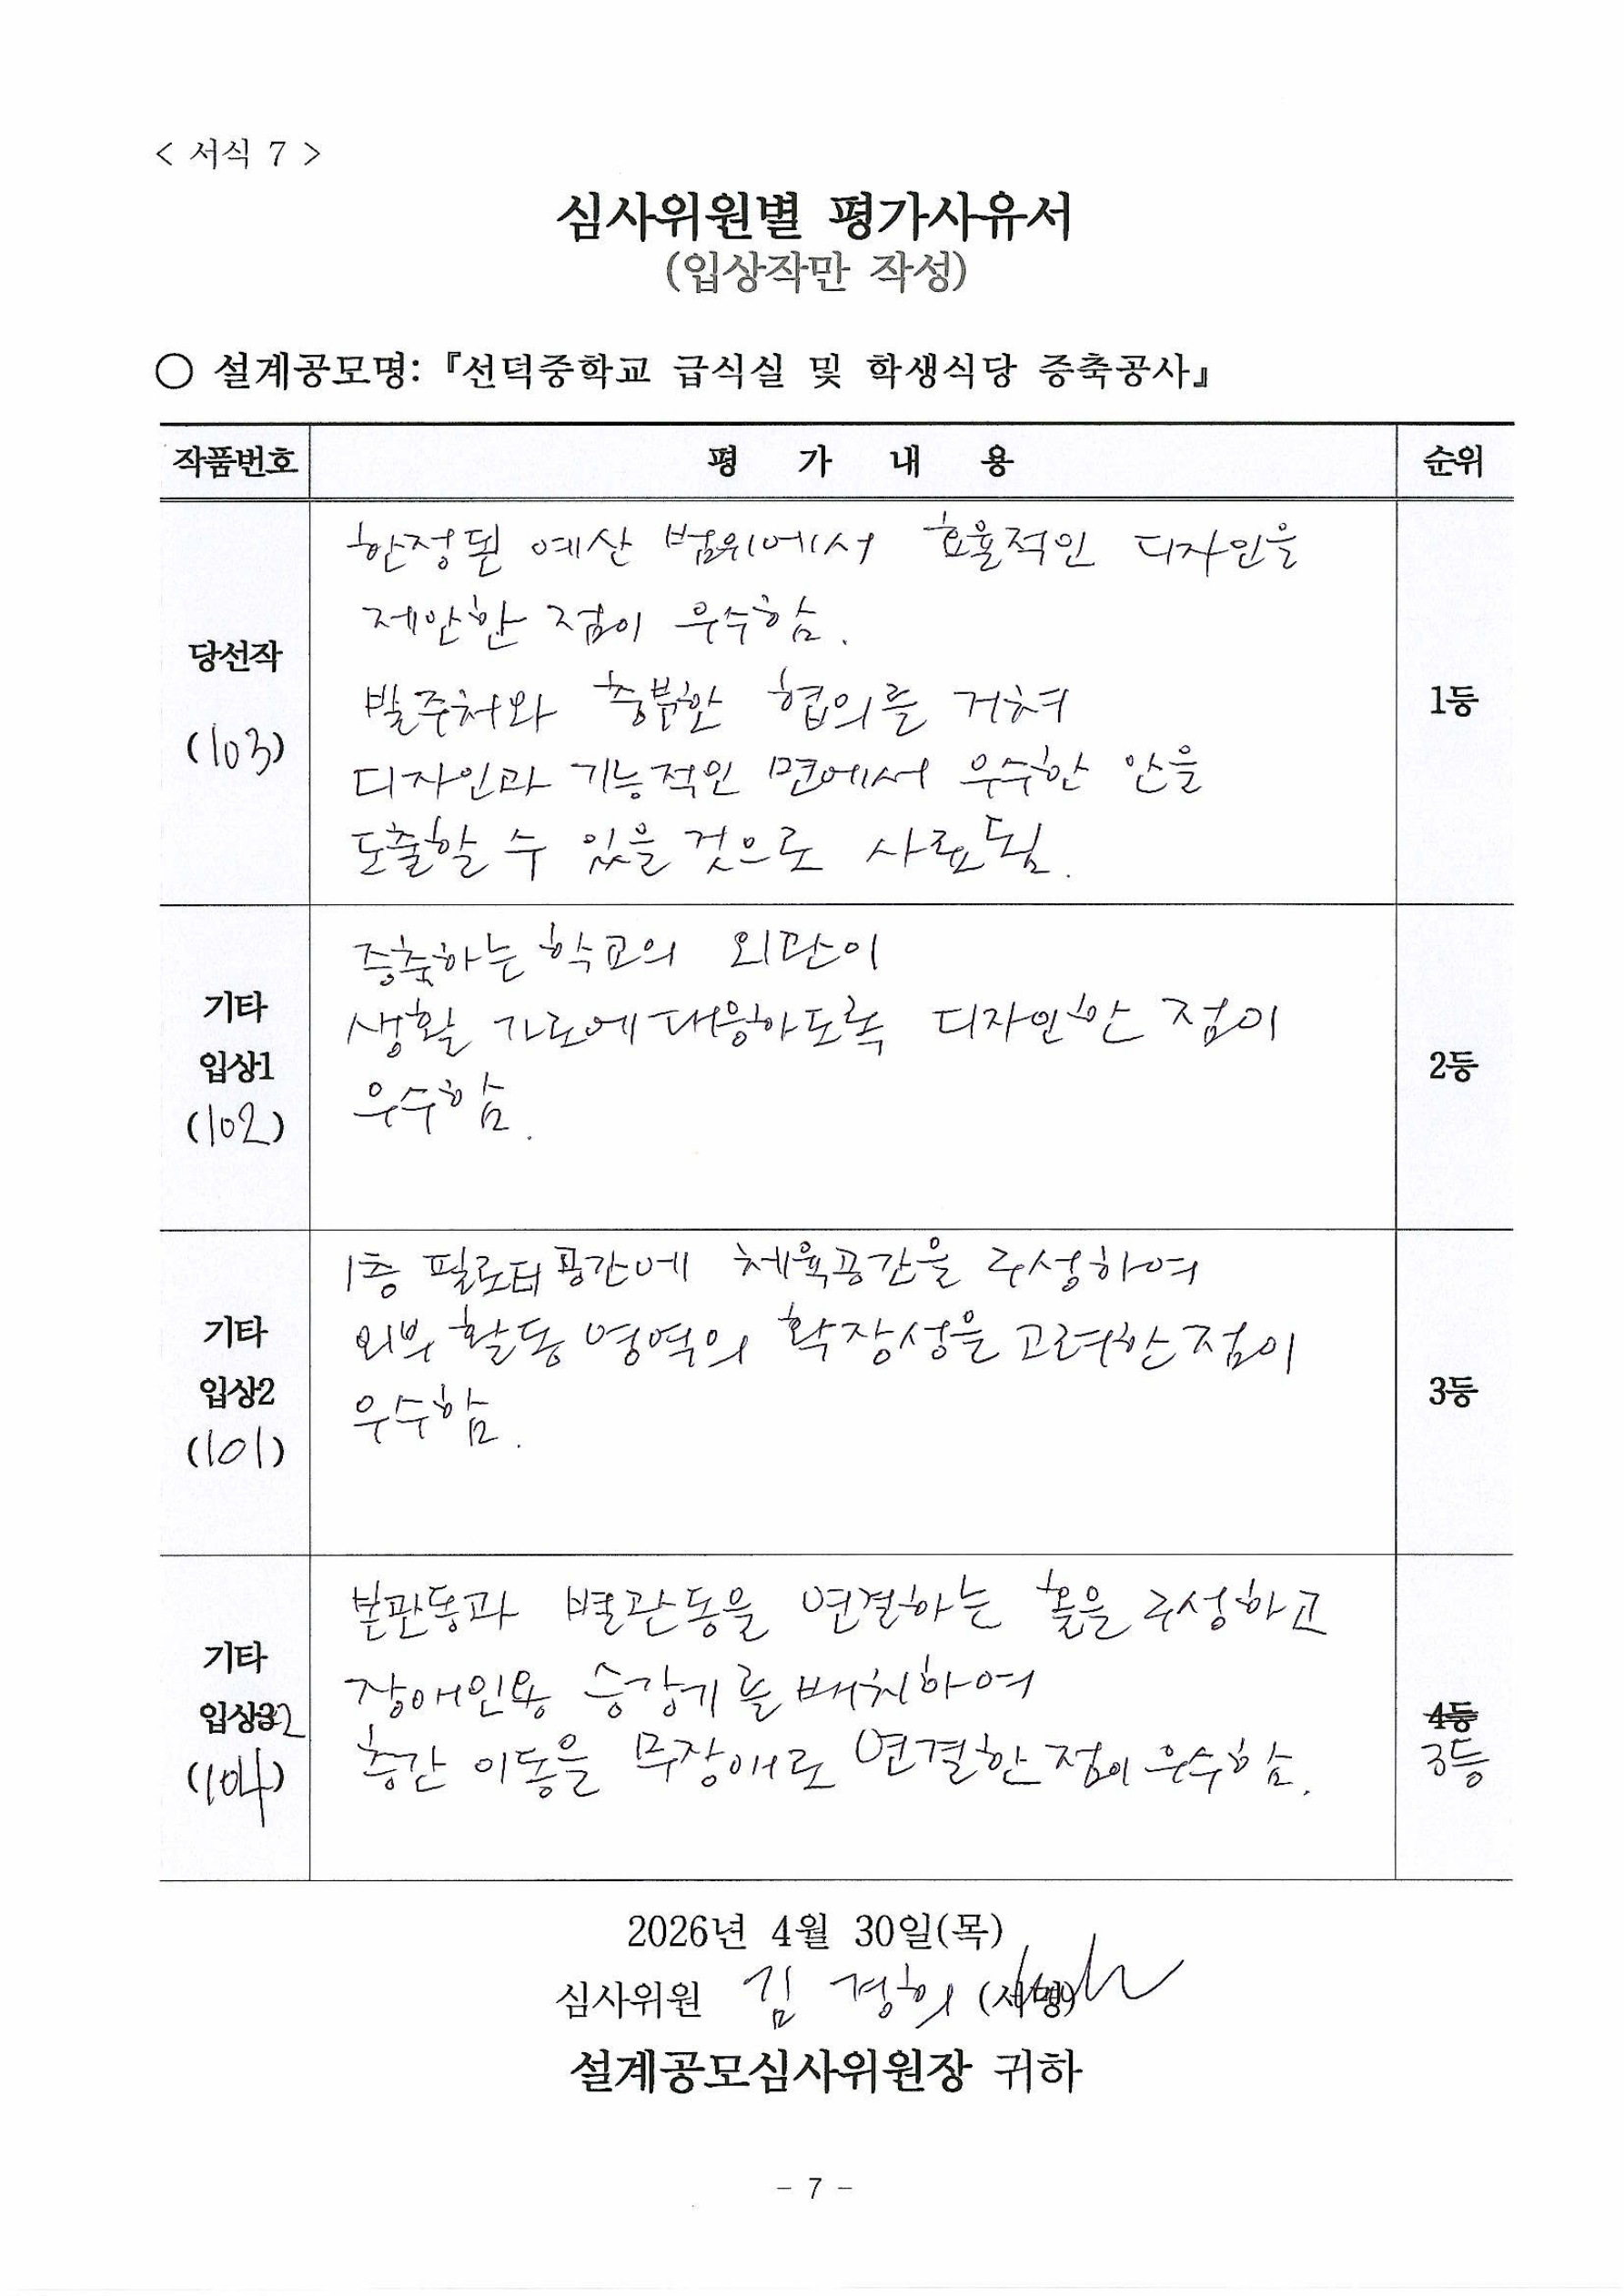 < 서식 7 >
심사위원별 평가사유서
(입상작만 작성)
○ 설계공모명: 『선덕중학교 급식실 및 학생식당 증축공사』
작품번호 평 가 내 용 순위
당선작
(103)
한정된 예산 범위에서 효율적인 디자인을
제안한 점이 우수함.
발주처와 충분한 협의를 거쳐
디자인과 기능적인 면에서 우수한 안을
도출할 수 있을 것으로 사료됨.
1등
기타
입상1
(102)
증축하는 학교의 외관이
생활 가로에 대응하도록 디자인한 점이
우수함.
2등
기타
입상2
(101)
1층 필로티 공간에 체육공간을 구성하여
외부 활동 영역의 확장성을 고려한 점이
우수함.
3등
기타
입상32
(104)
본관동과 별관동을 연결하는 홀을 구성하고
장애인용 승강기를 배치하여
층간 이동을 무장애로 연결한 점이 우수함.
4등
3등
2026년 4월 30일(목)
심사위원 김경희 (서명)
설계공모심사위원장 귀하
- 7 -